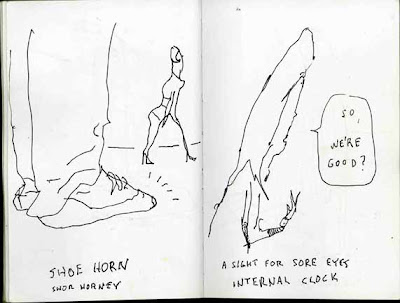 SHOE HORN
SHOR HORNEY
SO,
WE'RE
GOOD?
A SIGHT FOR SORE EYES
INTERNAL CLOCK